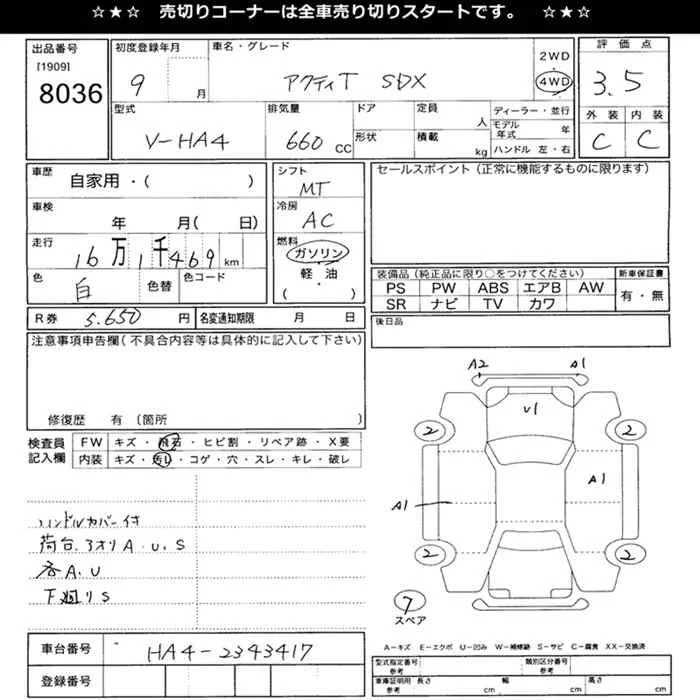 ☆★☆ 売切りコーナーは全車売り切りスタートです。 ☆★☆
出品番号 初度登録年月 車名・グレード 2WD 評価点
[1909] 8036 9 月 アクティT SDX 4WD 3.5
型式 排気量 ドア 定員 人 ディーラー・並行 外装 内装
V-HA4 660 CC 形状 積載 kg モデル年式 年 C C
ハンドル 左・右
車歴 自家用・( ) シフト MT セールスポイント(正常に機能するものに限ります)
車検 年 月( 日) 冷房 AC
走行 16万1千469 km 燃料 ガソリン
色 白 色替 色コード 軽・油
・( )
装備品(純正品に限り○をつけてください) 新車保証書
PS PW ABS エアB AW 有・無
SR ナビ TV カワ
R券 5.650 円 名変通知期限 月 日 後日品
注意事項申告欄(不具合内容等は具体的に記入して下さい)
修復歴 有 〔箇所
検査員記入欄 FW キズ・飛石・ヒビ割・リペア跡・X要
内装 キズ・汚レ・コゲ・穴・スレ・キレ・破レ
A2 A1
U1
2 2
A1
A1
2 2
7
スペア
ハンドルカバー付
荷台、アオリA.U.S
各A.U
下廻りS
車台番号 HA4-2343417
登録番号
A-キズ E-エクボ U-凹み W-補修跡 S-サビ C-腐食 XX-交換済
型式指定番号 参考 類別区分番号 参考
車庫証明用 参考 長さ cm 幅 cm 高さ cm